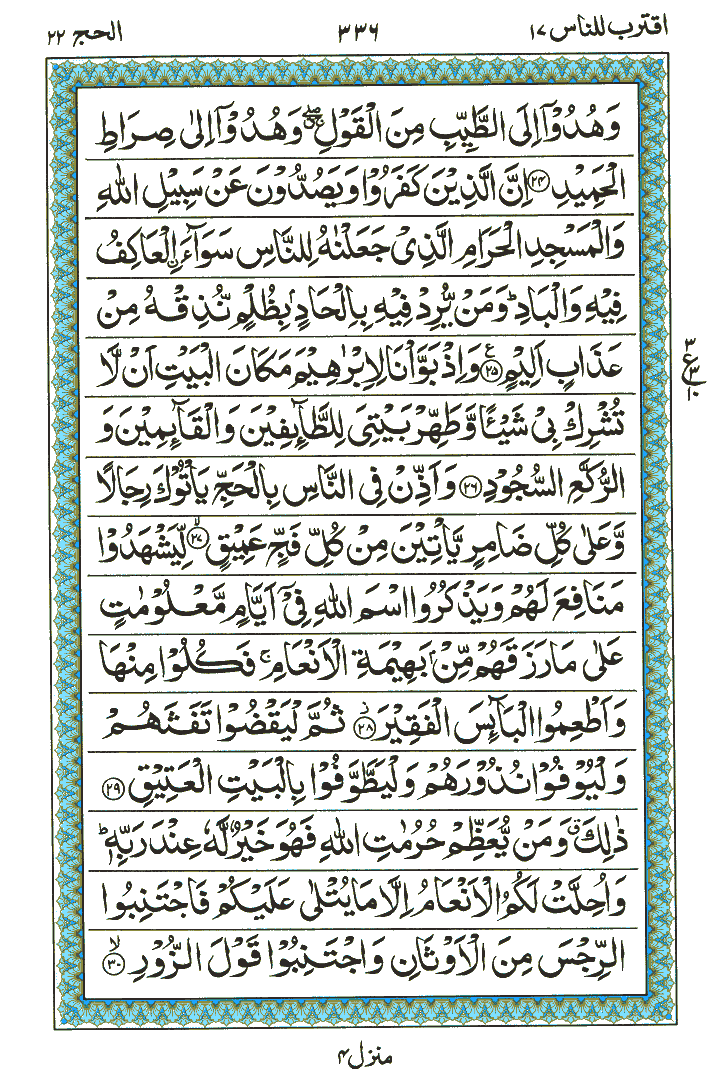 اقترب للناس ۱۷
۳۳۶
الحج ۲۲
وَهُدُوْۤا اِلَى الطَّيِّبِ مِنَ الْقَوْلِ ۖۚ وَهُدُوْۤا اِلٰى صِرَاطِ
الْحَمِيْدِ ﴿۲۴﴾ اِنَّ الَّذِيْنَ كَفَرُوْا وَيَصُدُّوْنَ عَنْ سَبِيْلِ اللّٰهِ
وَالْمَسْجِدِ الْحَرَامِ الَّذِىْ جَعَلْنٰهُ لِلنَّاسِ سَوَآءَ ۨالْعَاكِفُ
فِيْهِ وَالْبَادِ ؕ وَمَنْ يُّرِدْ فِيْهِ بِاِلْحَادٍۭ بِظُلْمٍ نُّذِقْهُ مِنْ
عَذَابٍ اَلِيْمٍ ﴿۲۵﴾ع وَاِذْ بَوَّاْنَا لِاِبْرٰهِيْمَ مَكَانَ الْبَيْتِ اَنْ لَّا
تُشْرِكْ بِىْ شَيْـًٔا وَّطَهِّرْ بَيْتِىَ لِلطَّآئِفِيْنَ وَالْقَآئِمِيْنَ وَ
الرُّكَّعِ السُّجُوْدِ ﴿۲۶﴾ وَاَذِّنْ فِى النَّاسِ بِالْحَجِّ يَاْتُوْكَ رِجَالًا
وَّعَلٰى كُلِّ ضَامِرٍ يَّاْتِيْنَ مِنْ كُلِّ فَجٍّ عَمِيْقٍ ﴿۲۷﴾ۙ لِّيَشْهَدُوْا
مَنَافِعَ لَهُمْ وَيَذْكُرُوا اسْمَ اللّٰهِ فِىْۤ اَيَّامٍ مَّعْلُوْمٰتٍ
عَلٰى مَا رَزَقَهُمْ مِّنْۢ بَهِيْمَةِ الْاَنْعَامِ ۚ فَكُلُوْا مِنْهَا
وَاَطْعِمُوا الْبَآئِسَ الْفَقِيْرَ ﴿۲۸﴾ؗ ثُمَّ لْيَقْضُوْا تَفَثَهُمْ
وَلْيُوْفُوْا نُذُوْرَهُمْ وَلْيَطَّوَّفُوْا بِالْبَيْتِ الْعَتِيْقِ ﴿۲۹﴾
ذٰلِكَ ۗ وَمَنْ يُّعَظِّمْ حُرُمٰتِ اللّٰهِ فَهُوَ خَيْرٌ لَّهٗ عِنْدَ رَبِّهٖ ؕ
وَاُحِلَّتْ لَكُمُ الْاَنْعَامُ اِلَّا مَا يُتْلٰى عَلَيْكُمْ فَاجْتَنِبُوا
الرِّجْسَ مِنَ الْاَوْثَانِ وَاجْتَنِبُوْا قَوْلَ الزُّوْرِ ﴿۳۰﴾ۙ
۳
ع ۳
۱۰
منزل ۴